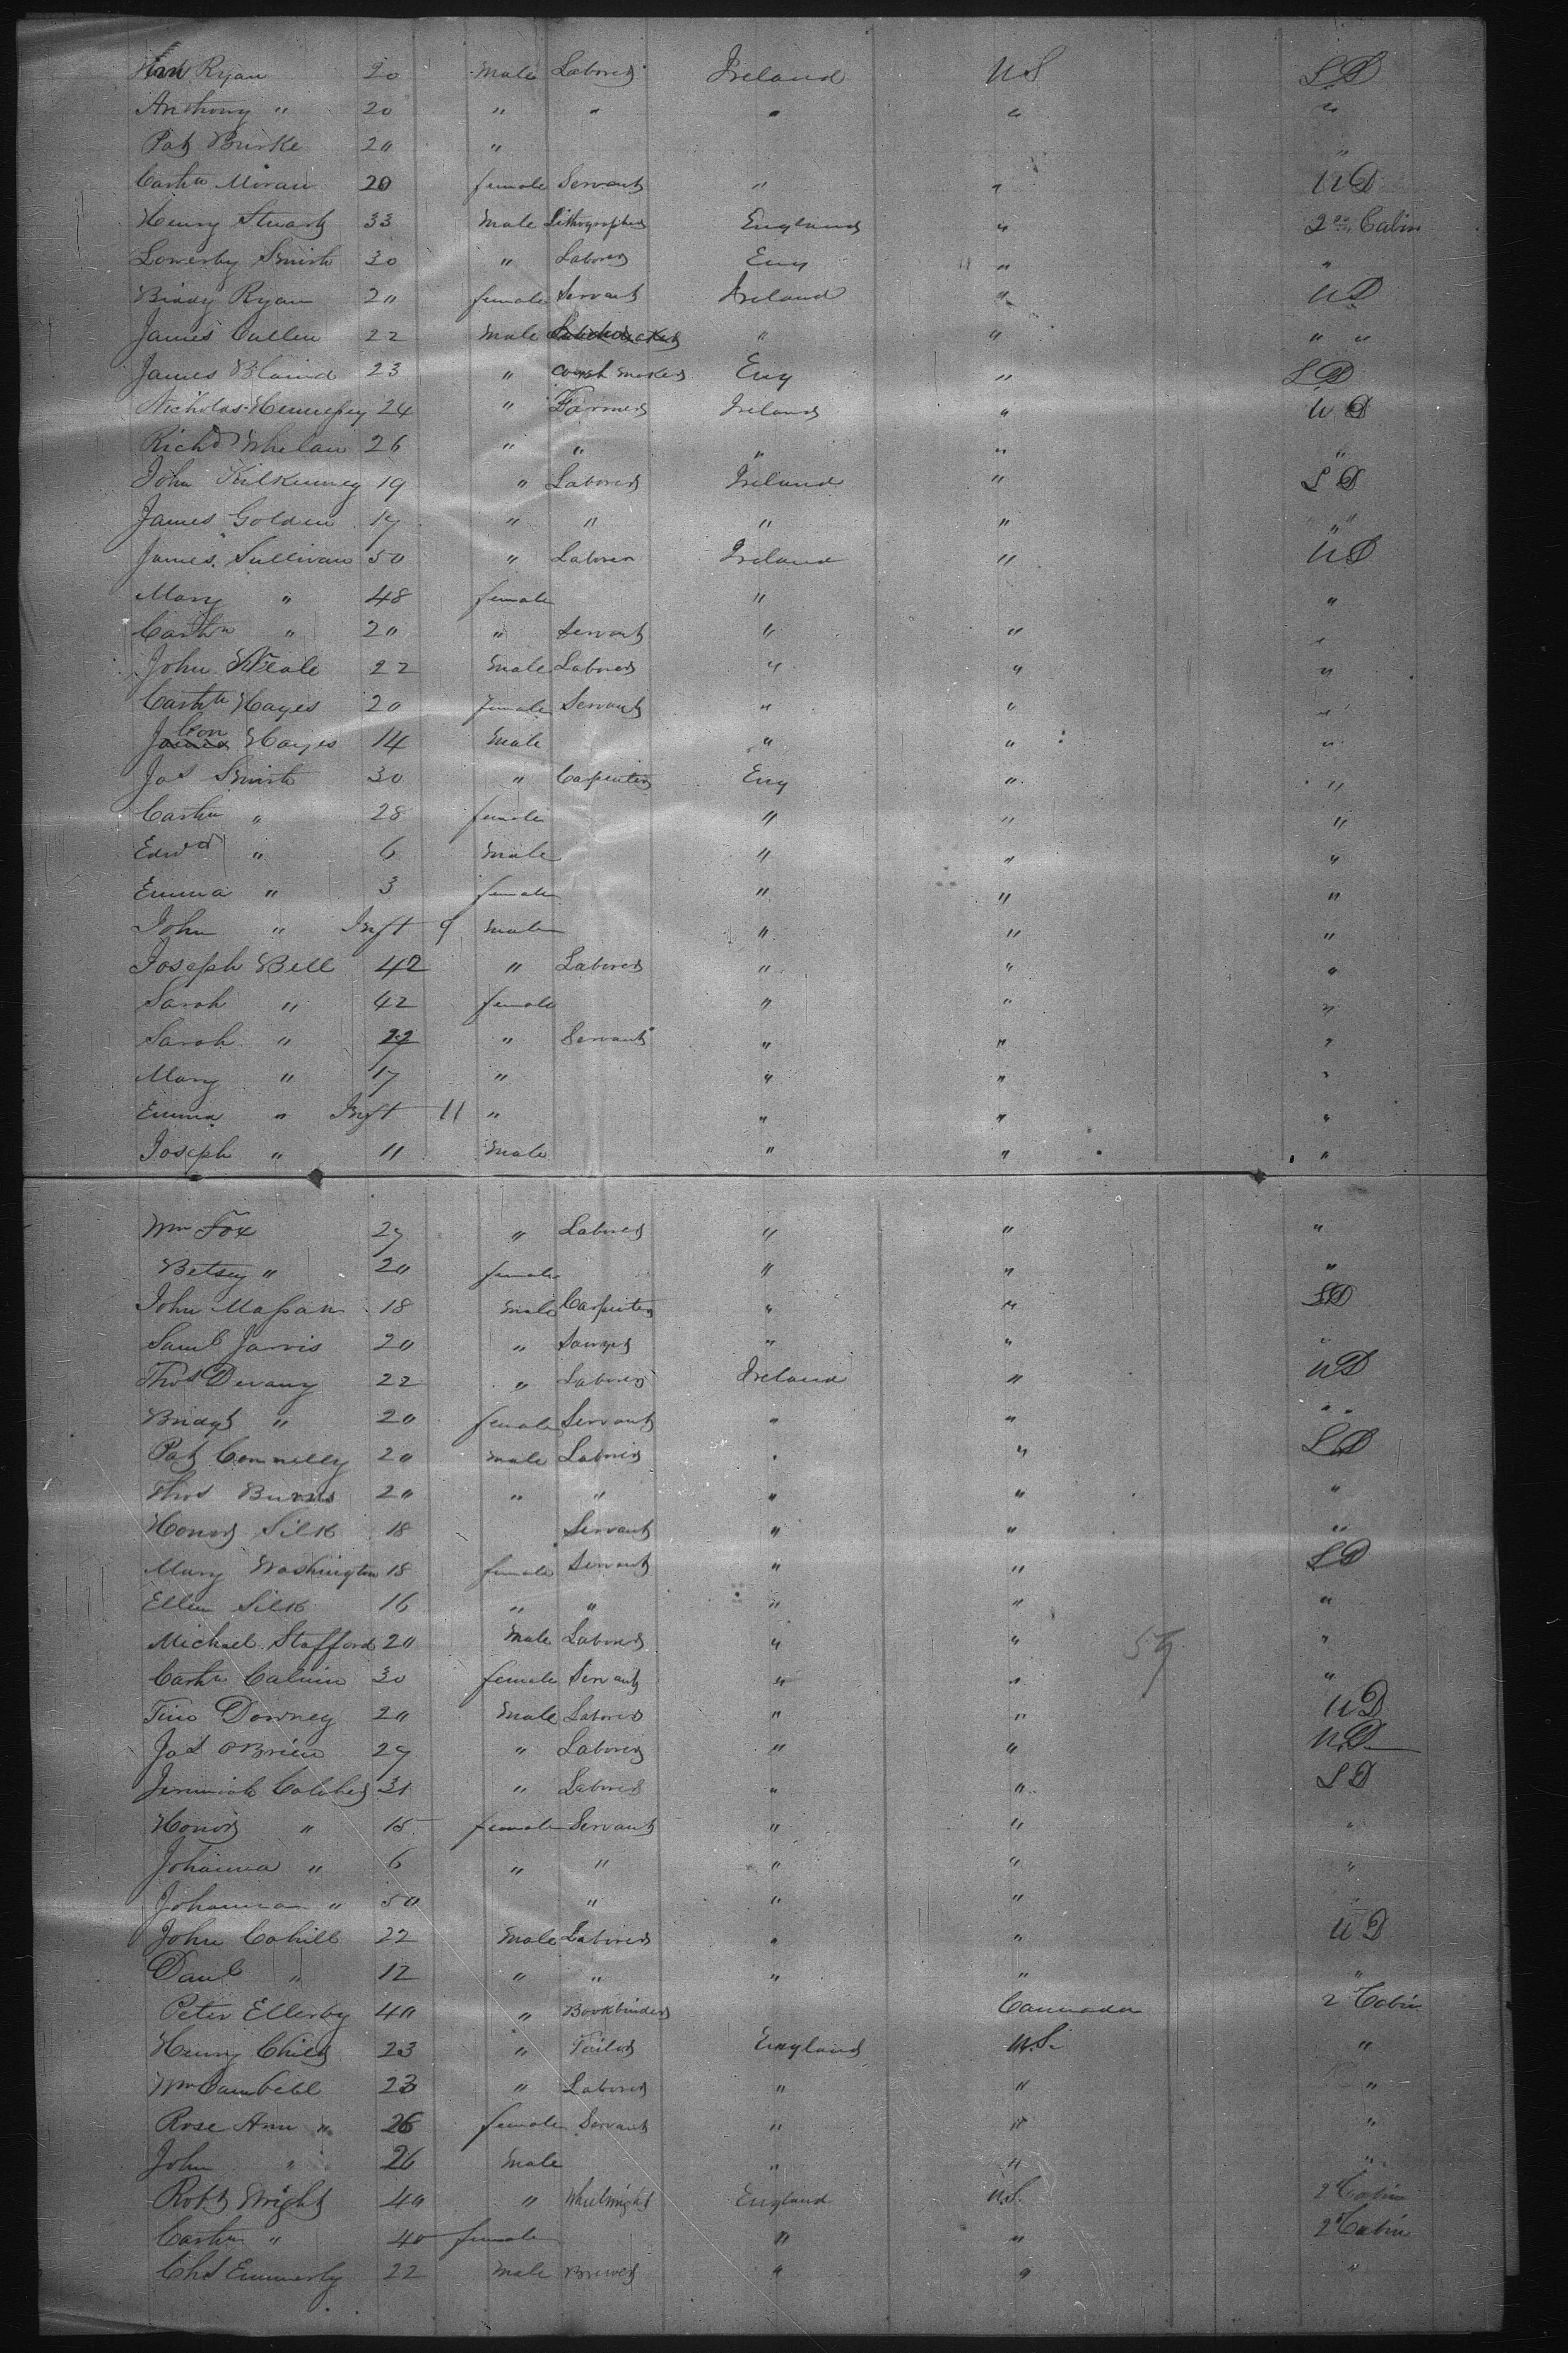 Ryan 20 male Laborer Ireland US LD
Anthony " 20 " " " " "
Pat Burke 20 " "
Cathn Moran 20 female Servant " " UD
Henry Stuart 33 Male Lithographer England " 2nd Cabin
Lowerby Smith 30 " Laborer Eng " "
Biddy Ryan 20 female Servant Ireland " UD
James Cullen 22 Male " " " "
James Blaind 23 " Coach maker Eng " LD
Nicholas Hennessy 24 " Farmer Ireland " UD
Richd Whelan 26 " " " " "
John Kilkenney 19 " Laborer Ireland " LD
James Golden 19 " " " " "
James Sullivan 50 " Laborer Ireland " UD
Mary " 48 female " "
Cathn " 20 " Servant " " "
John Neale 22 Male Laborer " " "
Cathn Hayes 20 female Servant " " "
Con Hayes 14 Male " " "
Jas Smith 30 " Carpenter Eng " "
Cathn " 28 female " " "
Edwd " 6 Male " " "
Emma " 3 female " " "
John " Inft 9 Male " " "
Joseph Bell 42 " Laborer " " "
Sarah " 42 female " " "
Sarah " 22 " Servant " " "
Mary " 17 " " " "
Emma " Inft 11 " " " "
Joseph " 11 Male " " "
Wm Fox 27 " Laborer " " "
Betsey " 20 female " " "
John Massam 18 Male Carpenter " " LD
Saml Jarvis 20 " Sawyer " " "
Thos Devany 22 " Laborer Ireland " UD
Bridgt " 20 female Servant " " " "
Pat Connelly 20 Male Laborer " " LD
Thos Burns 20 " " " " "
Honor Silk 18 Servant " " "
Mary Washington 18 female Servant " " LD
Ellen Silk 16 " " " " "
Michael Stafford 20 Male Laborer " " 59 "
Cathn Calnin 30 female Servant " " "
Timo Downey 20 Male Laborer " " UD
Jas OBrien 27 " Laborer " " UD
Jeremiah 31 " Laborer " " LD
Honor " 15 female Servant " " "
Johanna " 6 " " " " "
Johanna " 50 " " "
John Cahill 22 Male Laborer " " UD
Danl " 12 " " " " "
Peter Ellerby 40 " Bookbinder Cannada 2 Cabin
Henry Child 23 " Tailor England U.S. "
Wm Cambell 23 " Laborer " " "
Rose Ann " 26 female Servant " " "
John " 26 Male " " "
Robt Wright 40 " Wheelwright England U.S. 2d Cabin
Cathn " 40 female " " 2d Cabin
Chs Emmerly 22 Male Brewer " " "